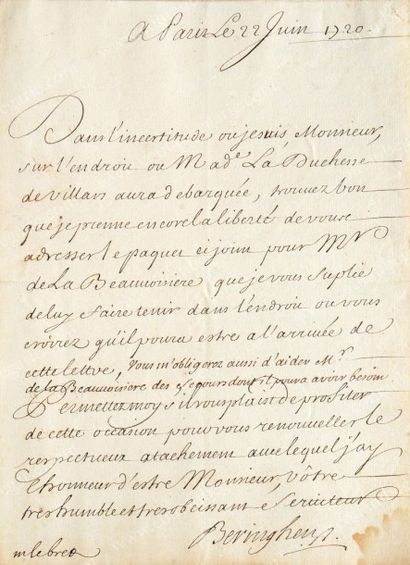 A Paris Le 22 Juin 1720.
Dans l'incertitude ou je suis Monsieur,
sur l'endroit ou Made La Duchesse
de Villars aura debarquée, trouvez bon
que je prenne encore la liberté de vous
adresser le paquet ci joint pour Mr
de La Beauvoisiere que je vous suplie
de luy faire tenir dans l'endroit ou vous
croirez qu'il poura estre a l'arrivée de
cette lettre, Vous m'obligerez aussi d'aider Mr
de la Beauvoisiere des secours dont il poura avoir besoin
Permettez moy s'il vous plaist de profiter
de cette occasion pour vous renouveller le
respectueux atachement avec lequel j'ay
L'honneur d'estre Monsieur, Vôtre
tres humble et tres obeissant Serviteur
Beringhen.
m lebret